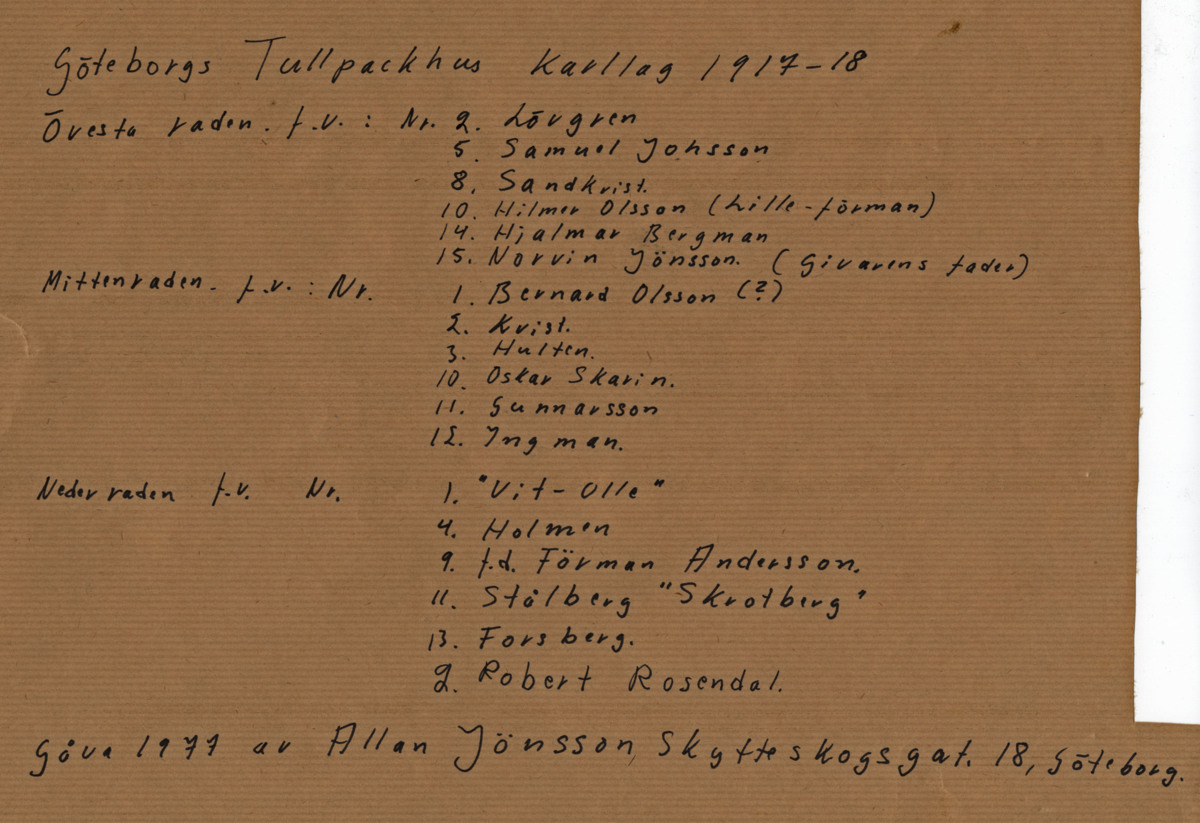 Göteborgs Tullpackhus Karllag 1917-18
Övesta raden. f.v.: Nr. 2. Lövgren
5. Samuel Johsson
8. Sandkvist.
10. Hilmer Olsson (Lille-förman)
14. Hjalmar Bergman
15. Norvin Jönsson. (Givarens fader)
Mittenraden. f.v.: Nr. 1. Bernard Olsson (?)
2. Kvist.
3. Hulten.
10. Oskar Skarin.
11. Gunnarsson
12. Yngman.
Nederraden f.v. Nr. 1. "Vit-Olle"
4. Holmen
9. f.d. Förman Andersson.
11. Stålberg "Skrotberg"
13. Forsberg.
2. Robert Rosendal.
Gåva 1977 av Allan Jönsson, Skytteskogsgat. 18, Göteborg.